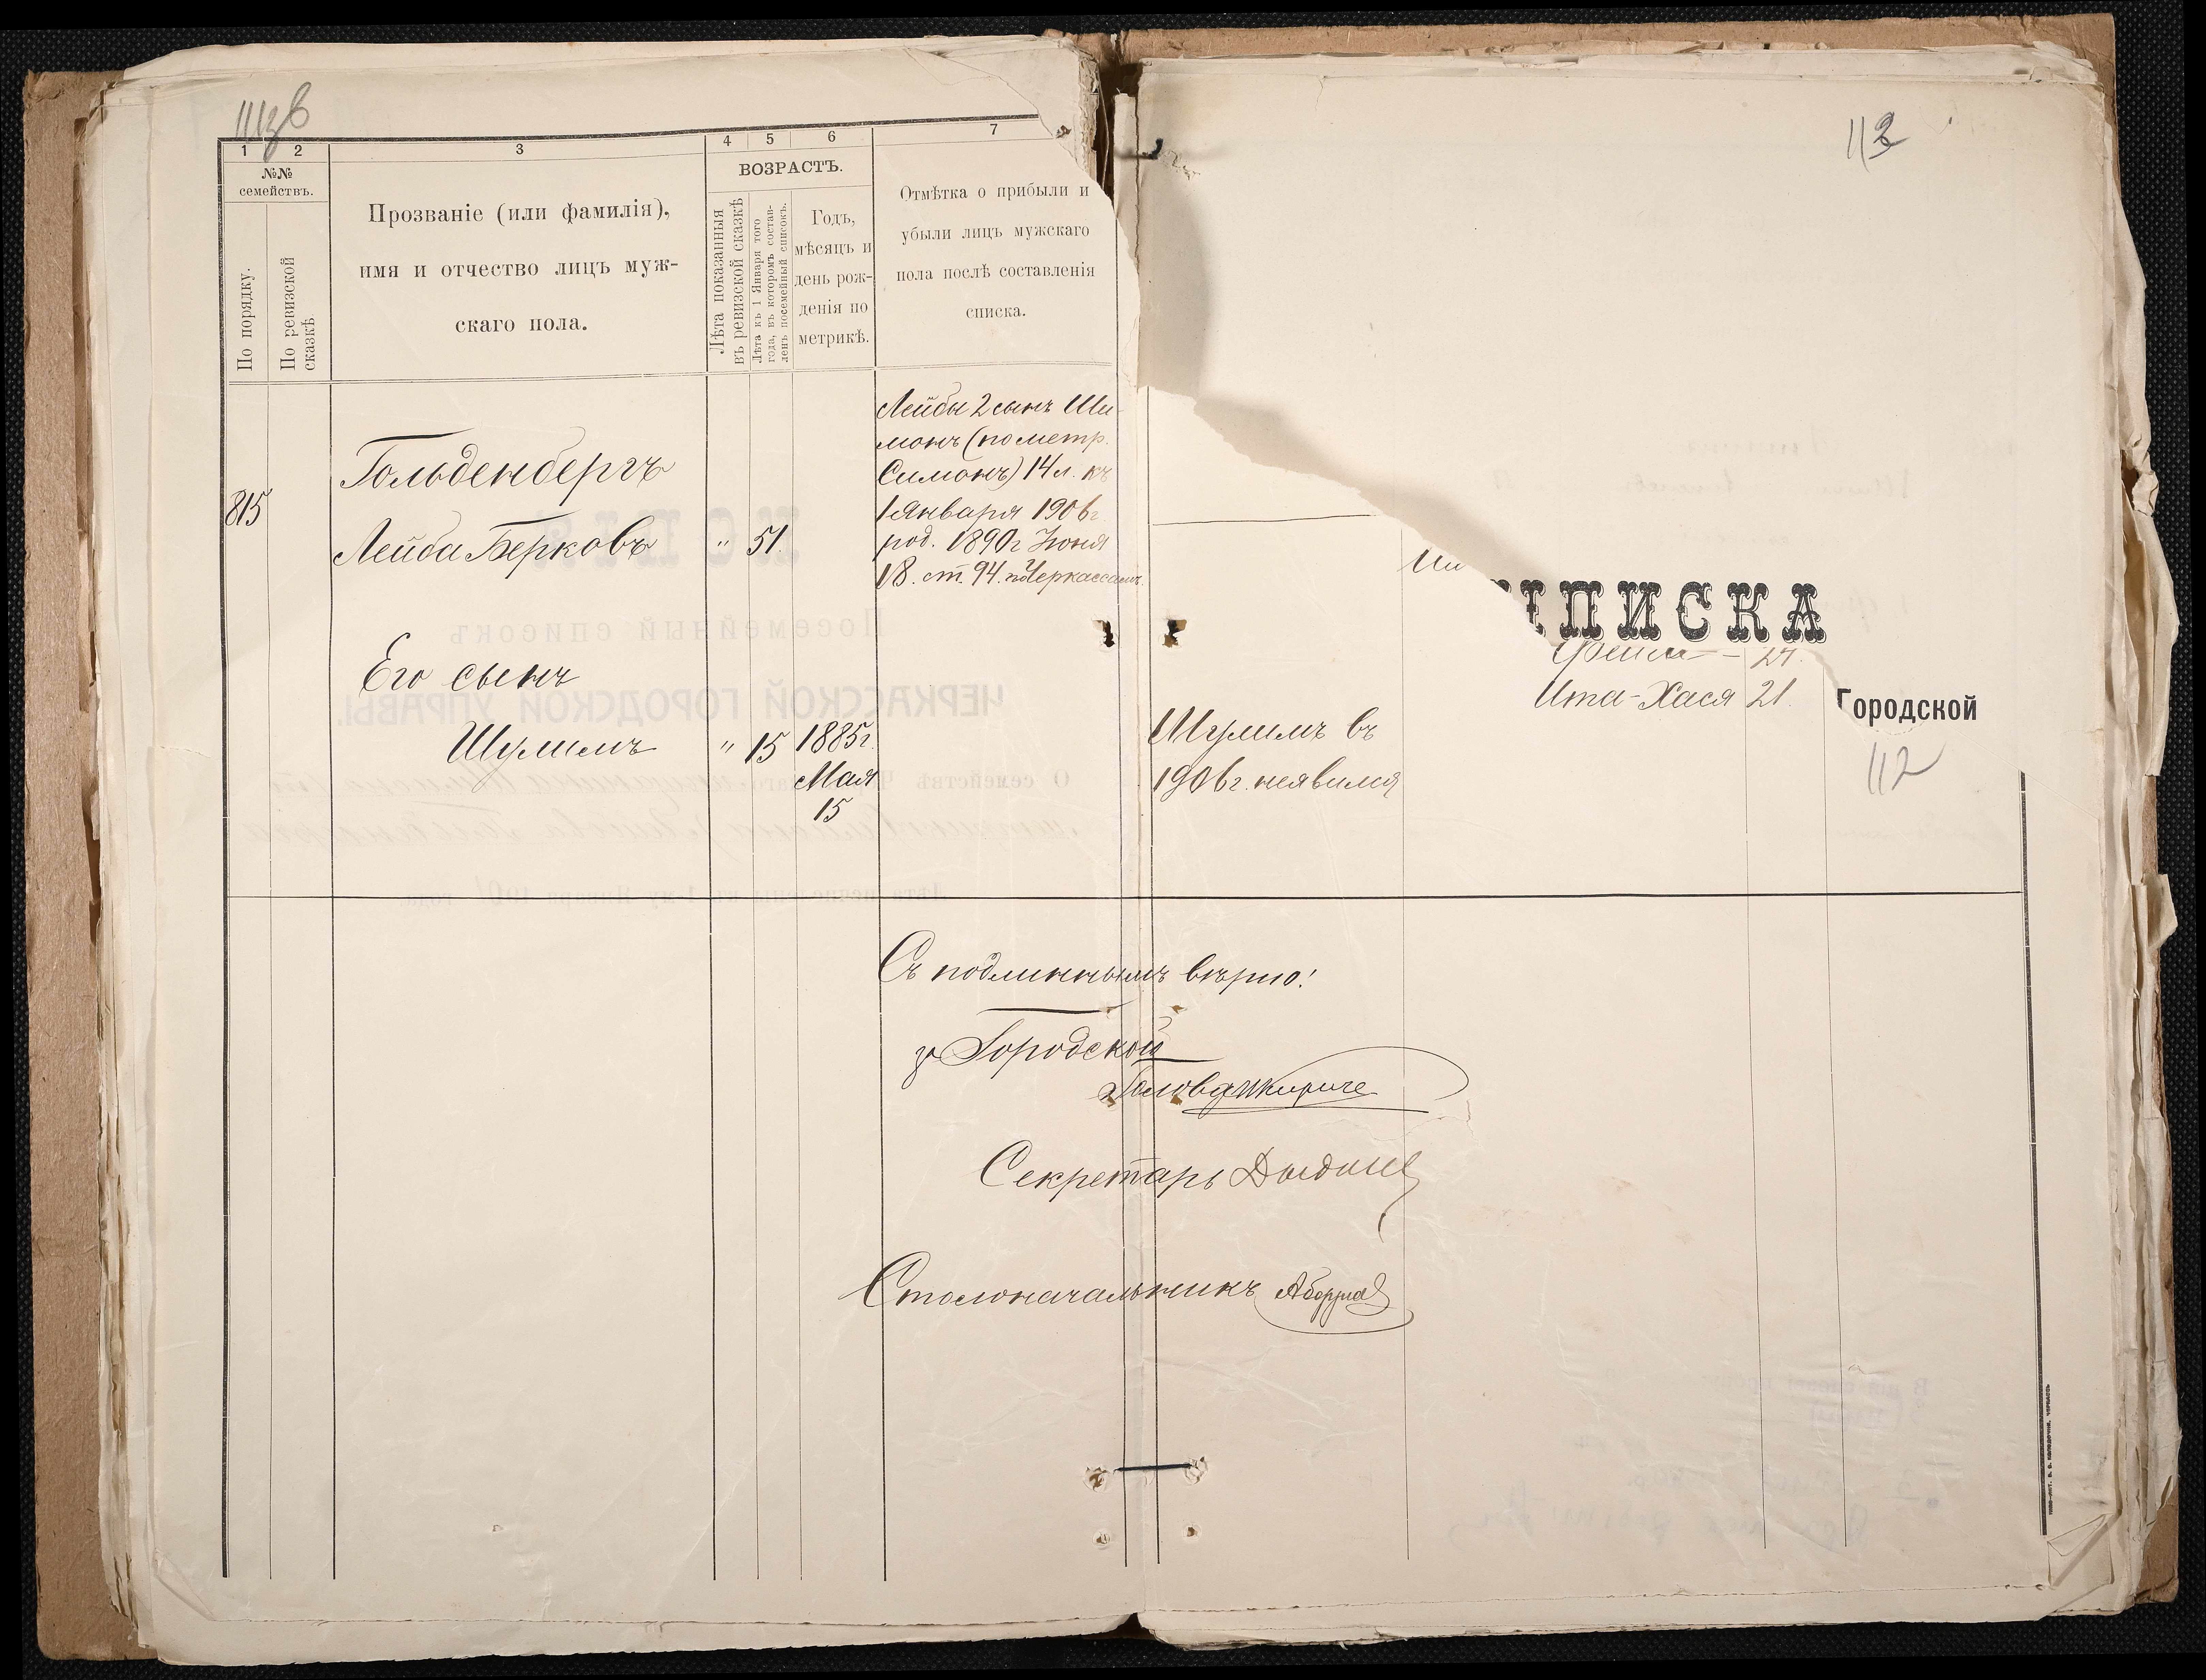 113
1 2 3 4 5 6 7
№№
семействъ.
По порядку.
По ревизской
сказкѣ
Прозваніе (или фамилія),
имя и отчество лицъ муж-
скаго пола.
ВОЗРАСТЪ.
Лѣта показанныя
въ ревизской сказкѣ
Лѣта къ 1 Января того
года, въ которомъ состав-
ленъ посемейный списокъ.
Годъ,
мѣсяцъ и
день рож-
денія по
метрикѣ.
Отмѣтка о прибыли и
убыли лицъ мужскаго
пола послѣ составленія
списка.
815
Гольденбергъ
Лейба Берковъ " 51.
Его сынъ
Шулимъ " 15 1885г.
Мая
15
Лейбы 2 сынъ Ши-
монъ (по метр.
Симонъ) 14 л. къ
1 Января 1906г
род. 1890г Іюня
18. ст. 94. по Черкассамъ.
Шулимъ въ
1906г. неявился
ПИСКА
21.
Ита-Хася 21.
Городской
112
Съ подлиннымъ вѣрно!
за Городской
Голова
Секретарь
Столоначальникъ